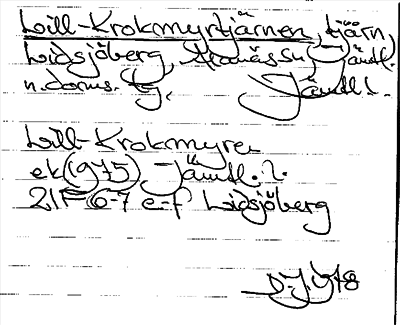 Lill-Krokmyrtjärnen, tjärn,
Lidsjöberg, Alanäs sn, Jämtl.
n. doms. tg, Jämtl l.
Lill-Krokmyren
ek (1975) Jämtl. l.
21F 6-7 e-f Lidsjöberg